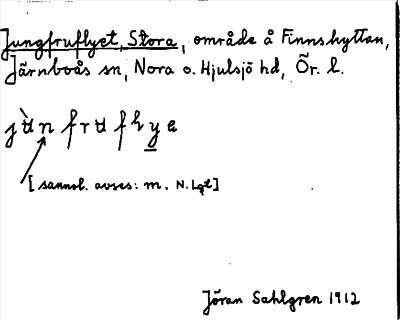 Jungfruflyet, Stora, område å Finnshyttan,
Järnboås sn, Nora o. Hjulsjö hd, Ör. l.
jùnfruflye
[sannol. avses: m. N. Lqt]
Jöran Sahlgren 1912